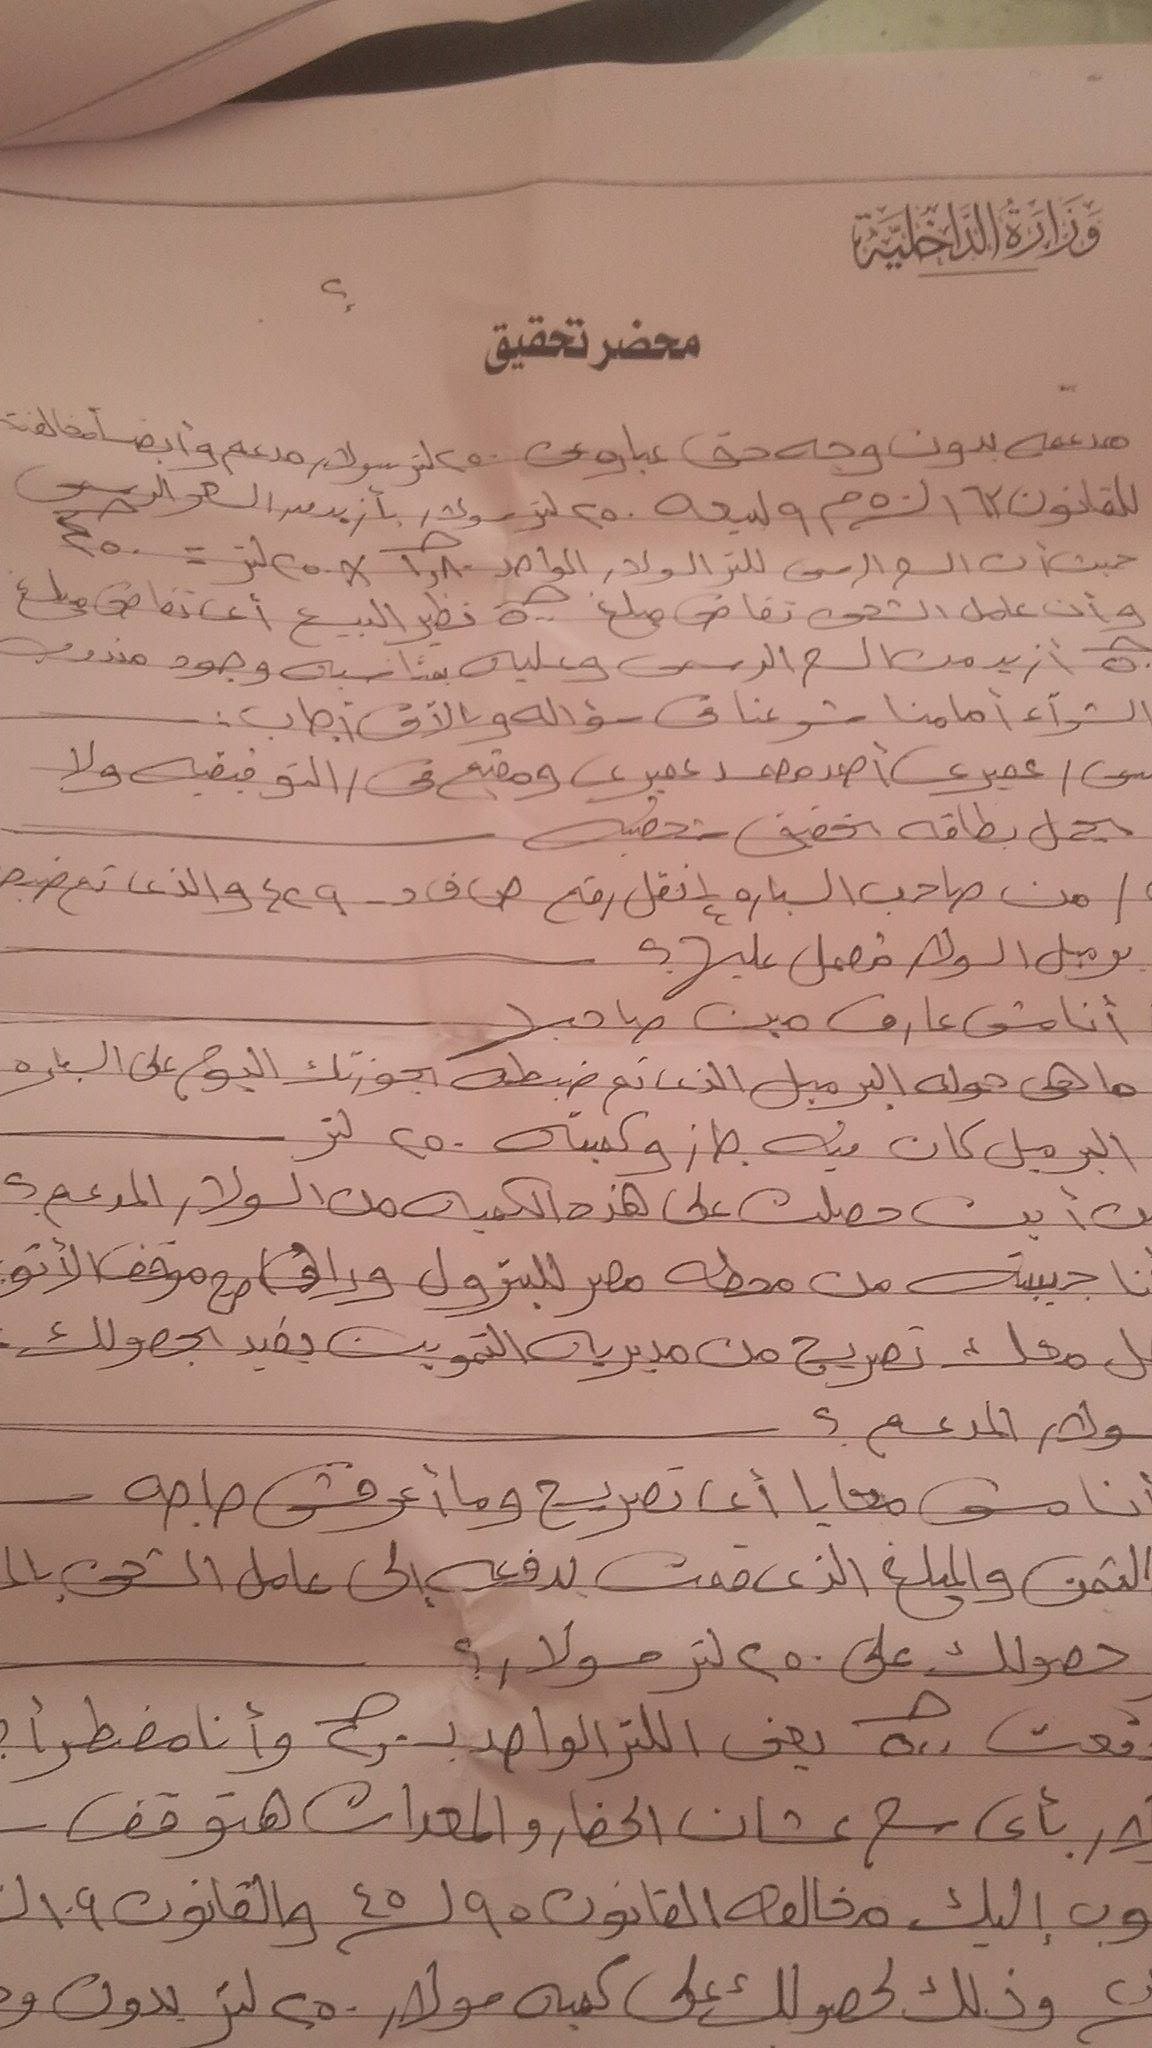 وزارة الداخلية
محضر تحقيق
مدعمه بدون وجه حق عباره عن ٢٥٠ لتر سولار مدعم وأيضاً مخالفة
للقانون ١٦٣ لـ ٥٠ م ولبيعه ٢٥٠ لتر سولار بأزيد من السعر الرسمى
حيث أن السعر الرسمى للتر السولار الواحد ١٫٨٠ × ٢٥٠ لتر = ٤٥٠
وأن عامل الشحن تقاضى مبلغ نظير البيع أى تقاضى مبلغ
٥٠ أزيد من السعر الرسمى وعليه بمناسبه وجود مندوب
الشراء أمامنا شرعنا فى سؤاله وبالآتى أجاب:
سمى / عميرى أحمد محمد عميرى ومقيم فى / التوفيقيه ولا
يحمل بطاقه تحقيق شخصيه
/ من صاحب السياره نقل رقم ص ف د ٤٢٩ والذى تم ضبط
برميل السولار محمل عليها؟
أنا مش عارف مين صاحبها
ما هى حوله البرميل الذى تم ضبطه بحوزتك اليوم على السياره
البرميل كان فيه جاز وكميته ٢٥٠ لتر
من أين حصلت على هذه الكميه من السولار المدعم؟
أنا جيبته من محطه مصر للبترول موقف الأتو
هل معك تصريح من مديريه التموين يفيد بحصولك
سولار المدعم؟
أنا مش معايا أى تصريح وما أعرفش حاجه
الثمن والمبلغ الذى قمت بدفعه إلى عامل الشحن
حصولك على ٢٥٠ لتر سولار؟
دفعت ٥٠٠ يعنى اللتر الواحد بـ ٢٫٠٠ وأنا مضطر
بأى سعر عشان الحفار والمعدات هتوقف
إليك مخالفه القانون ٩٥ لـ ٤٥ والقانون ١٠٩ لـ
وذلك لحصولك على كميه سولار ٢٥٠ لتر بدون